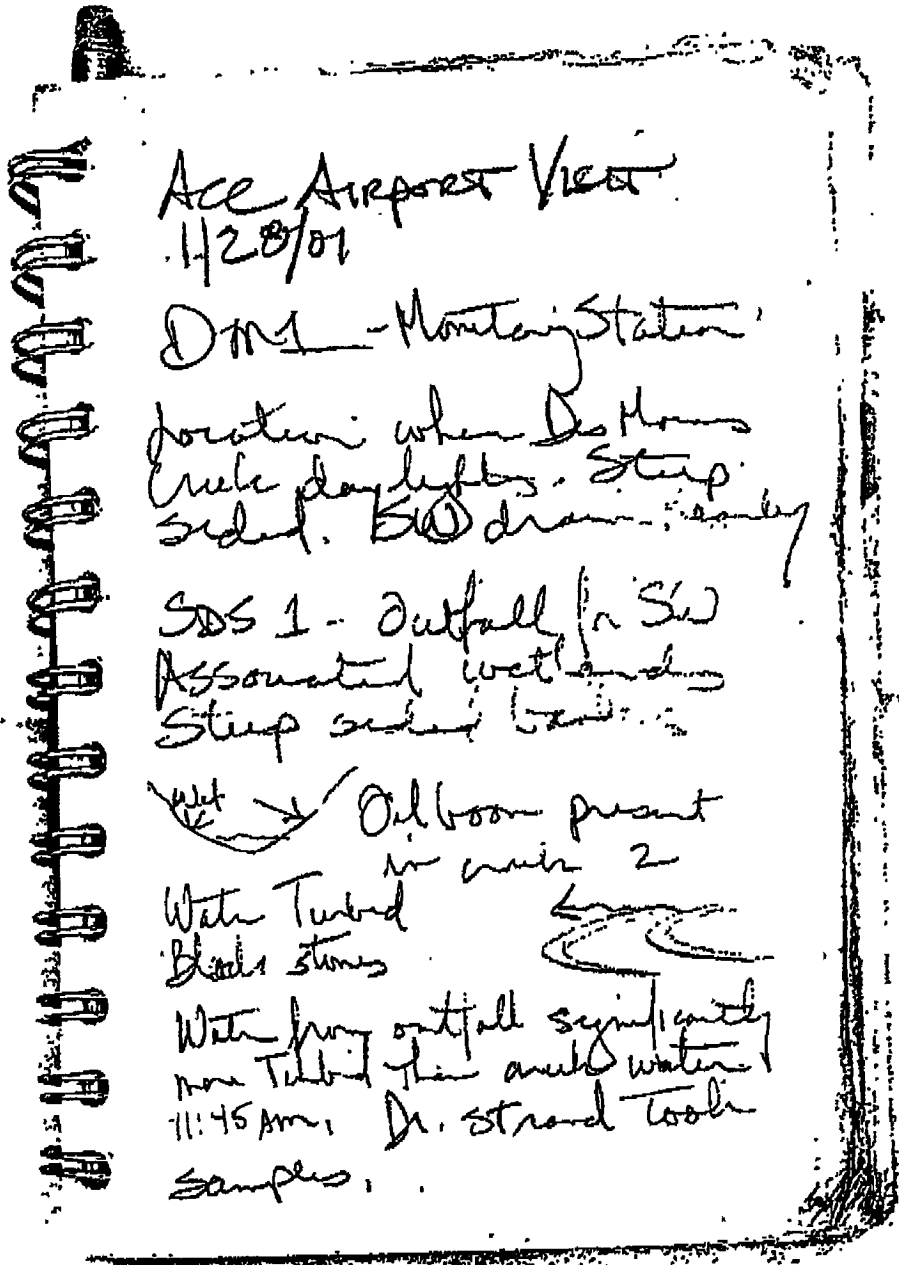 ACC AIRPORT VISIT
1/28/01
DM1 - Monitoring Station
Location where Des Moines
Creek daylights. Steep
sided. SW drain
SDS 1 - Outfall for SW
Associated wetlands
Steep sided
Wet
Oil boom present
in creek 2
Water Turbid
Black stones
Water from outfall significantly
more Turbid than creek water
11:45 Am, Dr. Strand Took
samples.